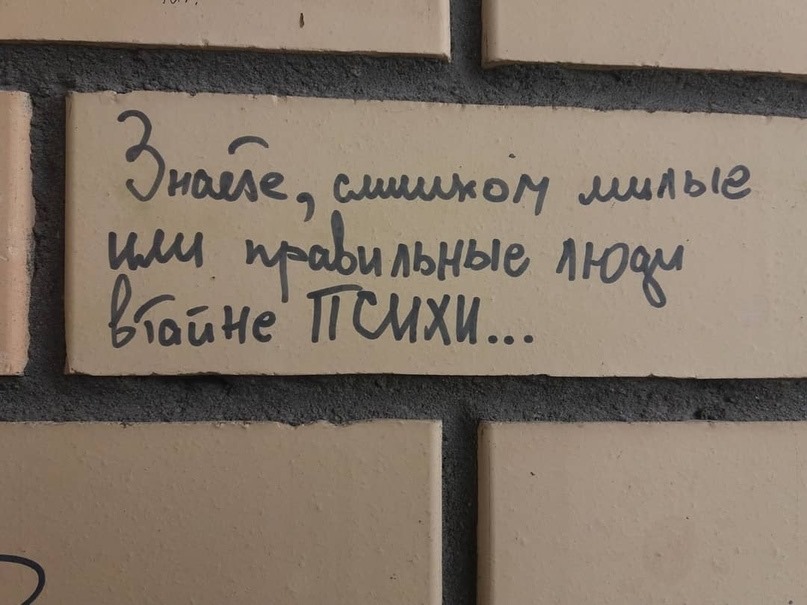 Знаете, слишком милые
или правильные люди
втайне ПСИХИ...